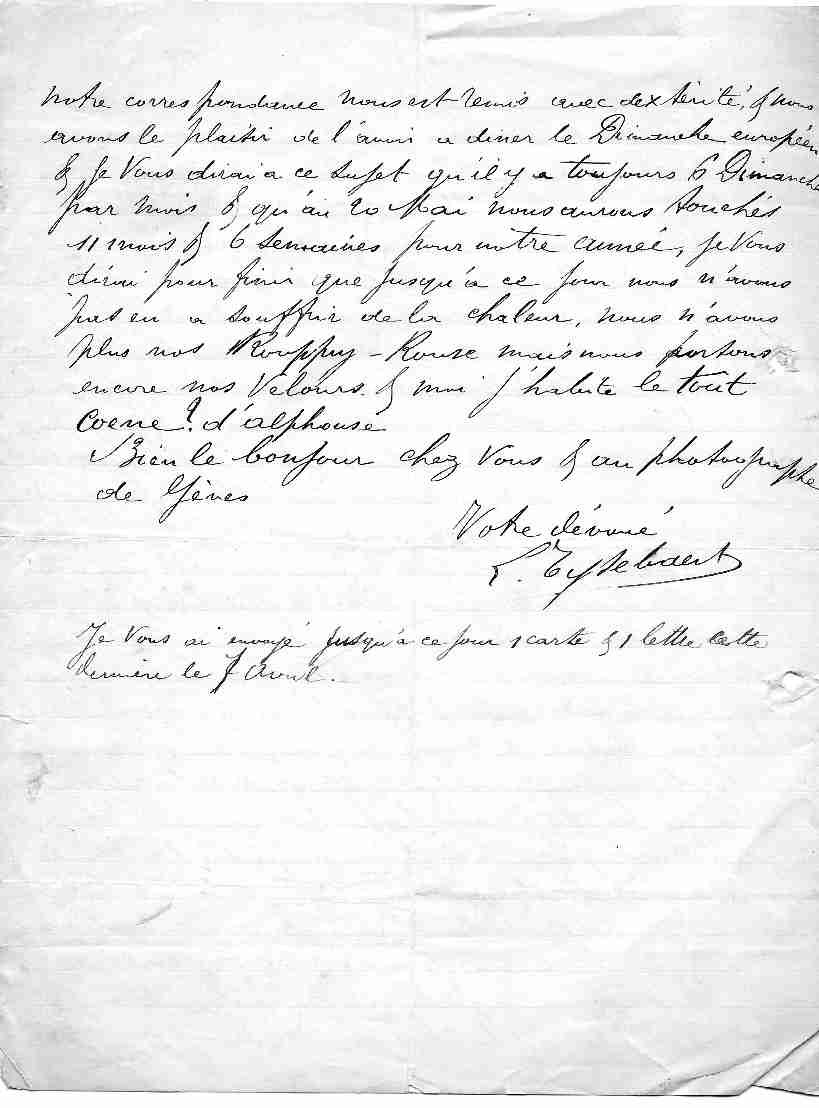 notre correspondance nous est remis avec dextérité, & nous
avons le plaisir de l'avoir a diner le Dimanche européen
& Je Vous dirai a ce sujet qu'il y a toujours 6 Dimanche
par mois & qu'au 20 Mai nous aurons touchés
11 mois & 6 semaines pour notre année, Je Vous
dirai pour finir que jusqu'à ce jour nous n'avons
pas eu a souffrir de la chaleur, nous n'avons
plus nos mais nous portons
encore nos Velours. & moi j'habite le tout
d'alphonse
Bien le bonjour chez Vous & au photographe
de Gênes
Votre dévoué
Je Vous ai envoyé jusqu'à ce jour 1 carte & 1 lettre cette
dernière le 7 Avril.